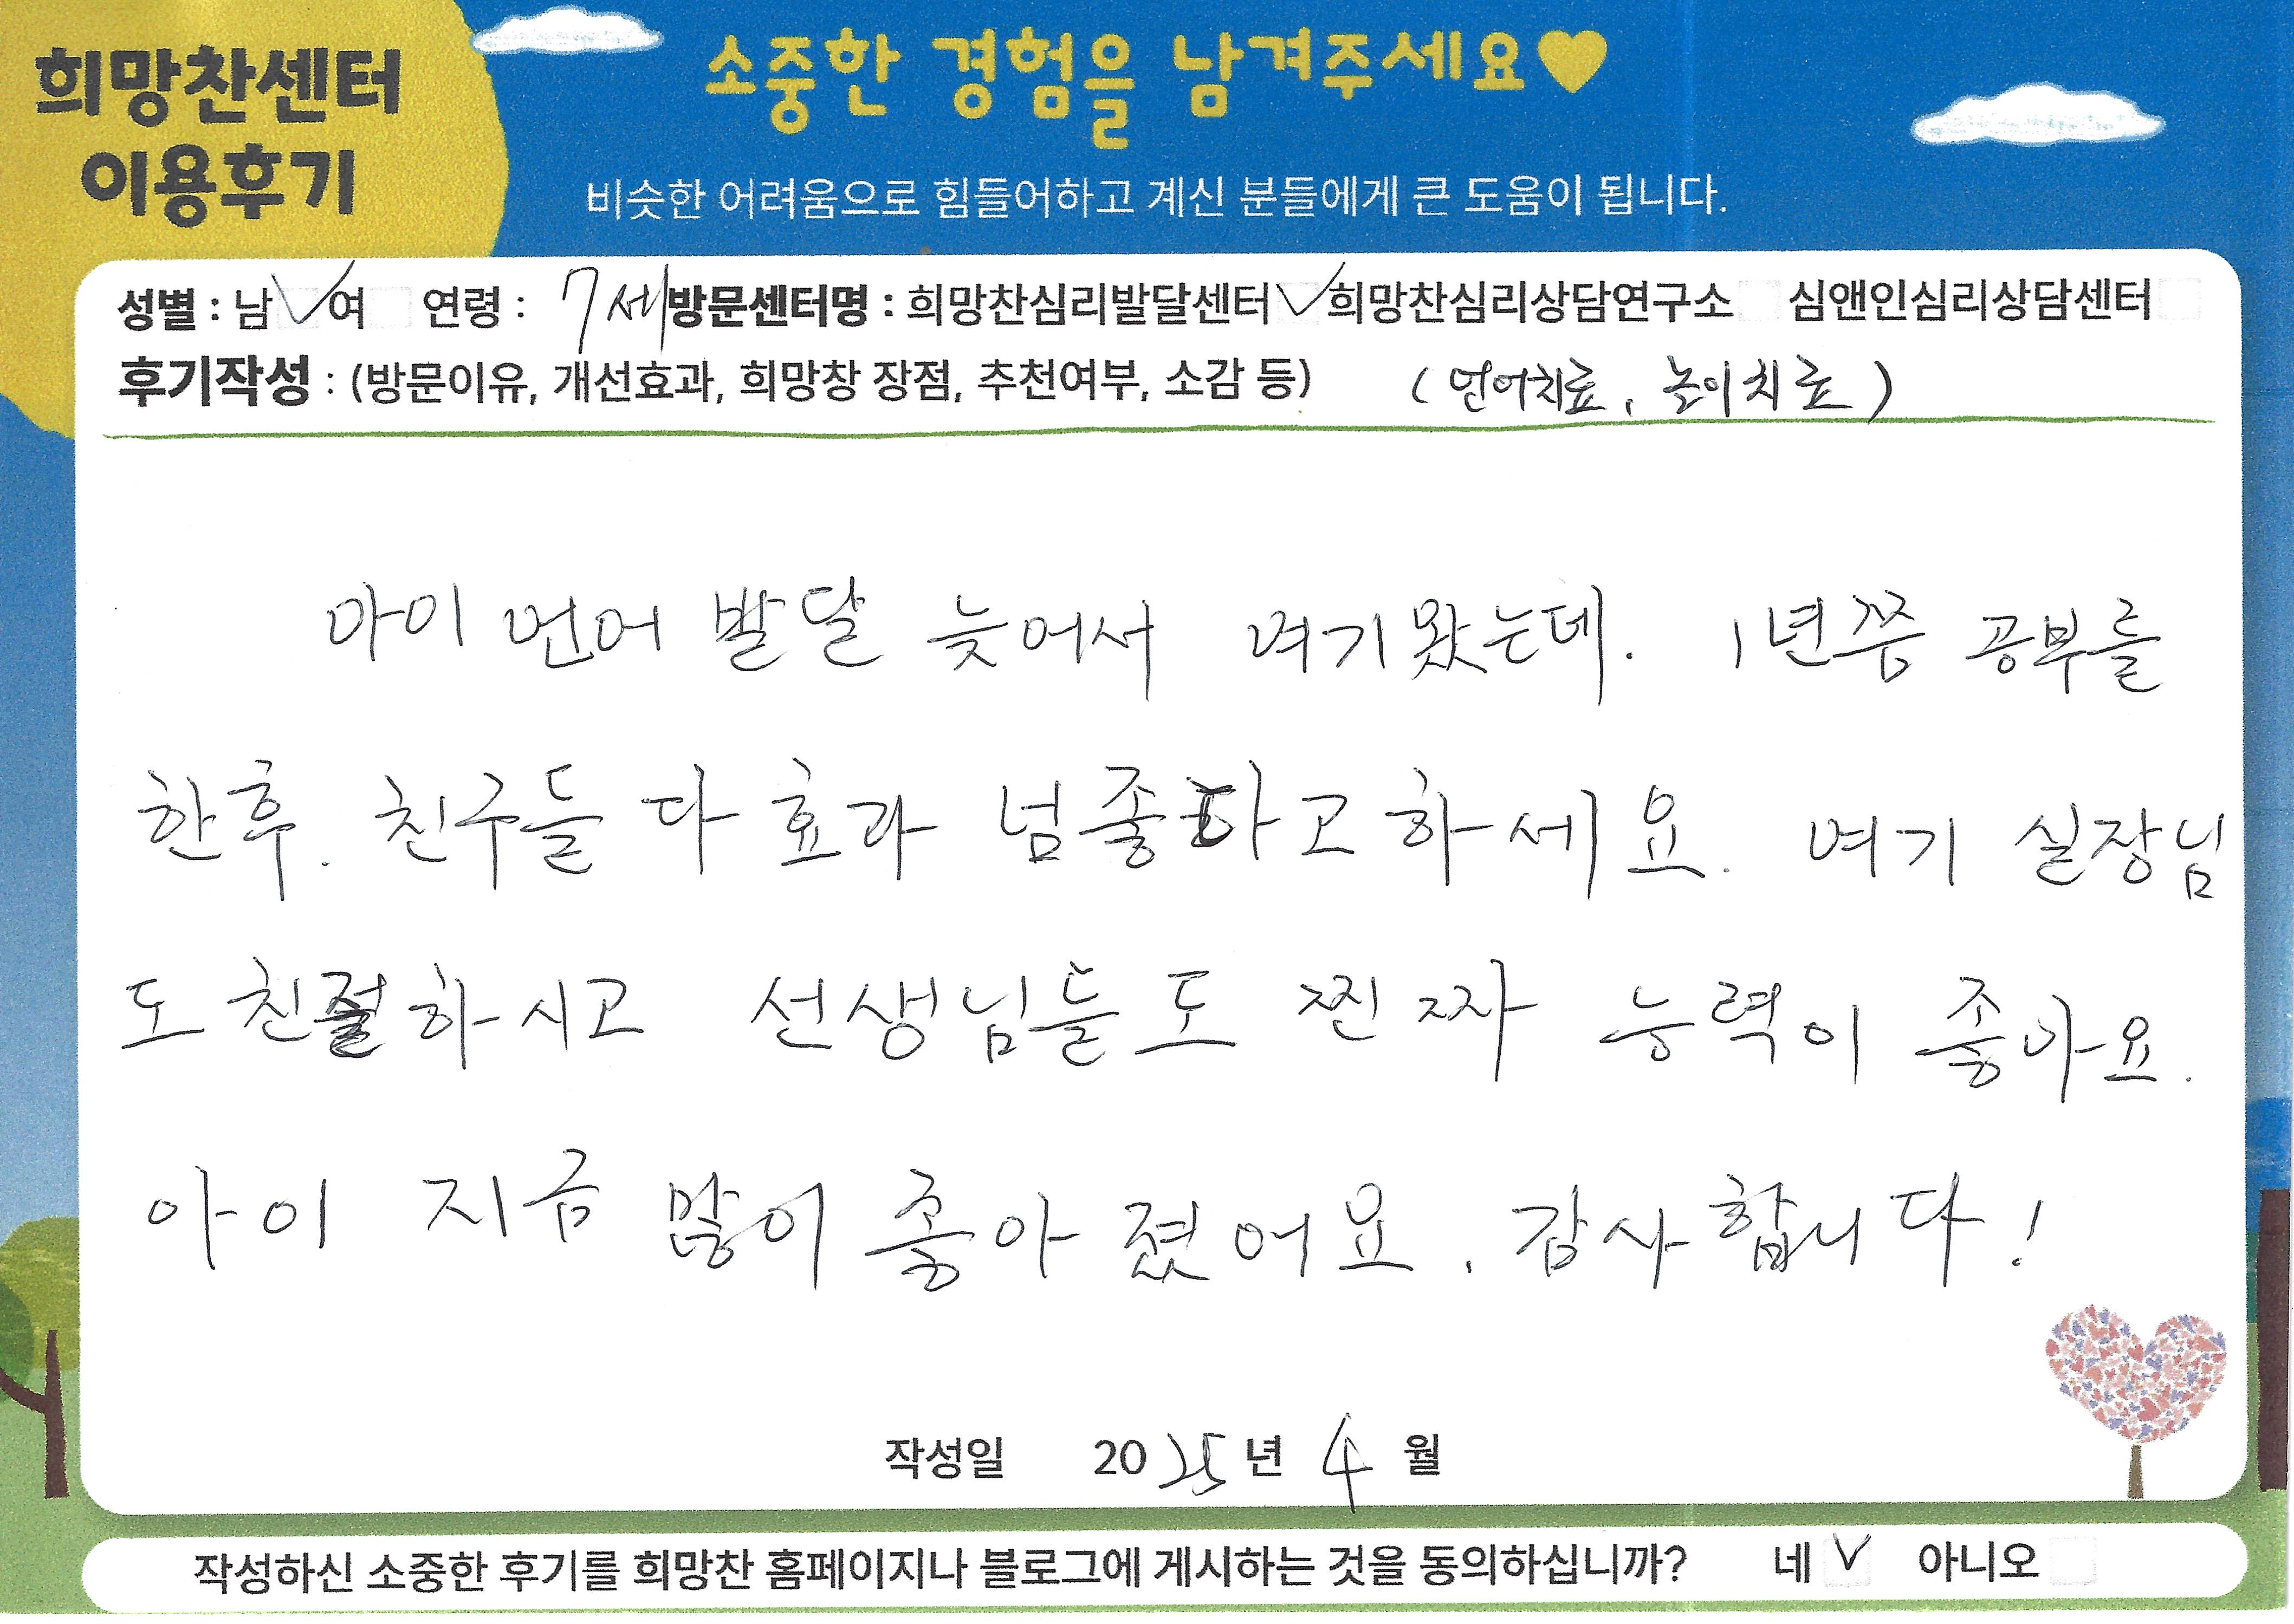 희망찬센터
이용후기
소중한 경험을 남겨주세요♥
비슷한 어려움으로 힘들어하고 계신 분들에게 큰 도움이 됩니다.
성별 : 남 ✓ 여 연령 : 7세 방문센터명 : 희망찬심리발달센터 ✓ 희망찬심리상담연구소 심앤인심리상담센터
후기작성 : (방문이유, 개선효과, 희망창 장점, 추천여부, 소감 등) (언어치료, 놀이치료)
아이 언어 발달 늦어서 여기왔는데. 1년쯤 공부를
한후. 친구들 다 효과 넘좋다고하세요. 여기 실장님
도 친절하시고 선생님들도 찐짜 능력이 좋아요.
아이 지금 많이 좋아졌어요. 감사합니다!
작성일 2025년 4월
작성하신 소중한 후기를 희망찬 홈페이지나 블로그에 게시하는 것을 동의하십니까? 네 ✓ 아니오